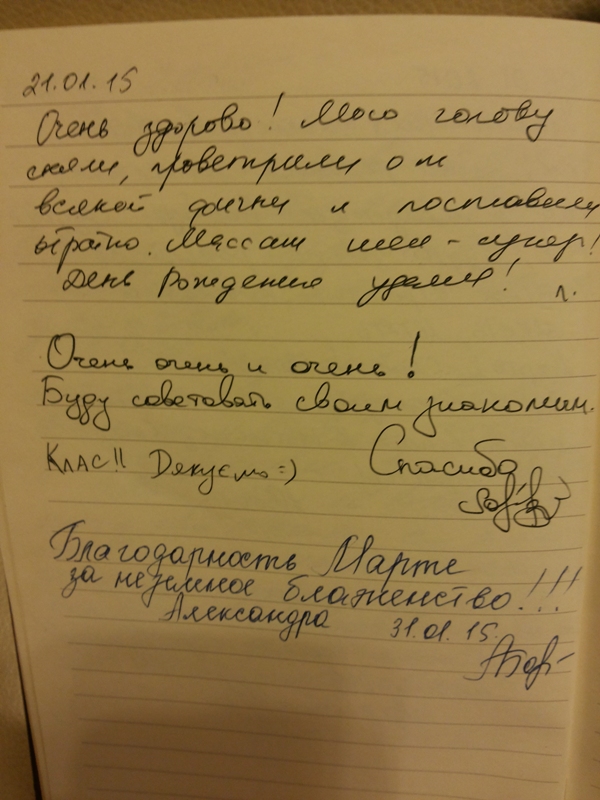 21.01.15
Очень здорово! Мою голову
сняли, проветрили от
всякой фигни и поставили
обратно. Массаж шеи - супер!
День Рождения удался!
Л.
Очень очень и очень!
Буду советовать своим знакомым.
Спасибо
Клас!! Дякуємо =)
Благодарность Марте
за неземное блаженство!!!
Александра 31.01.15.